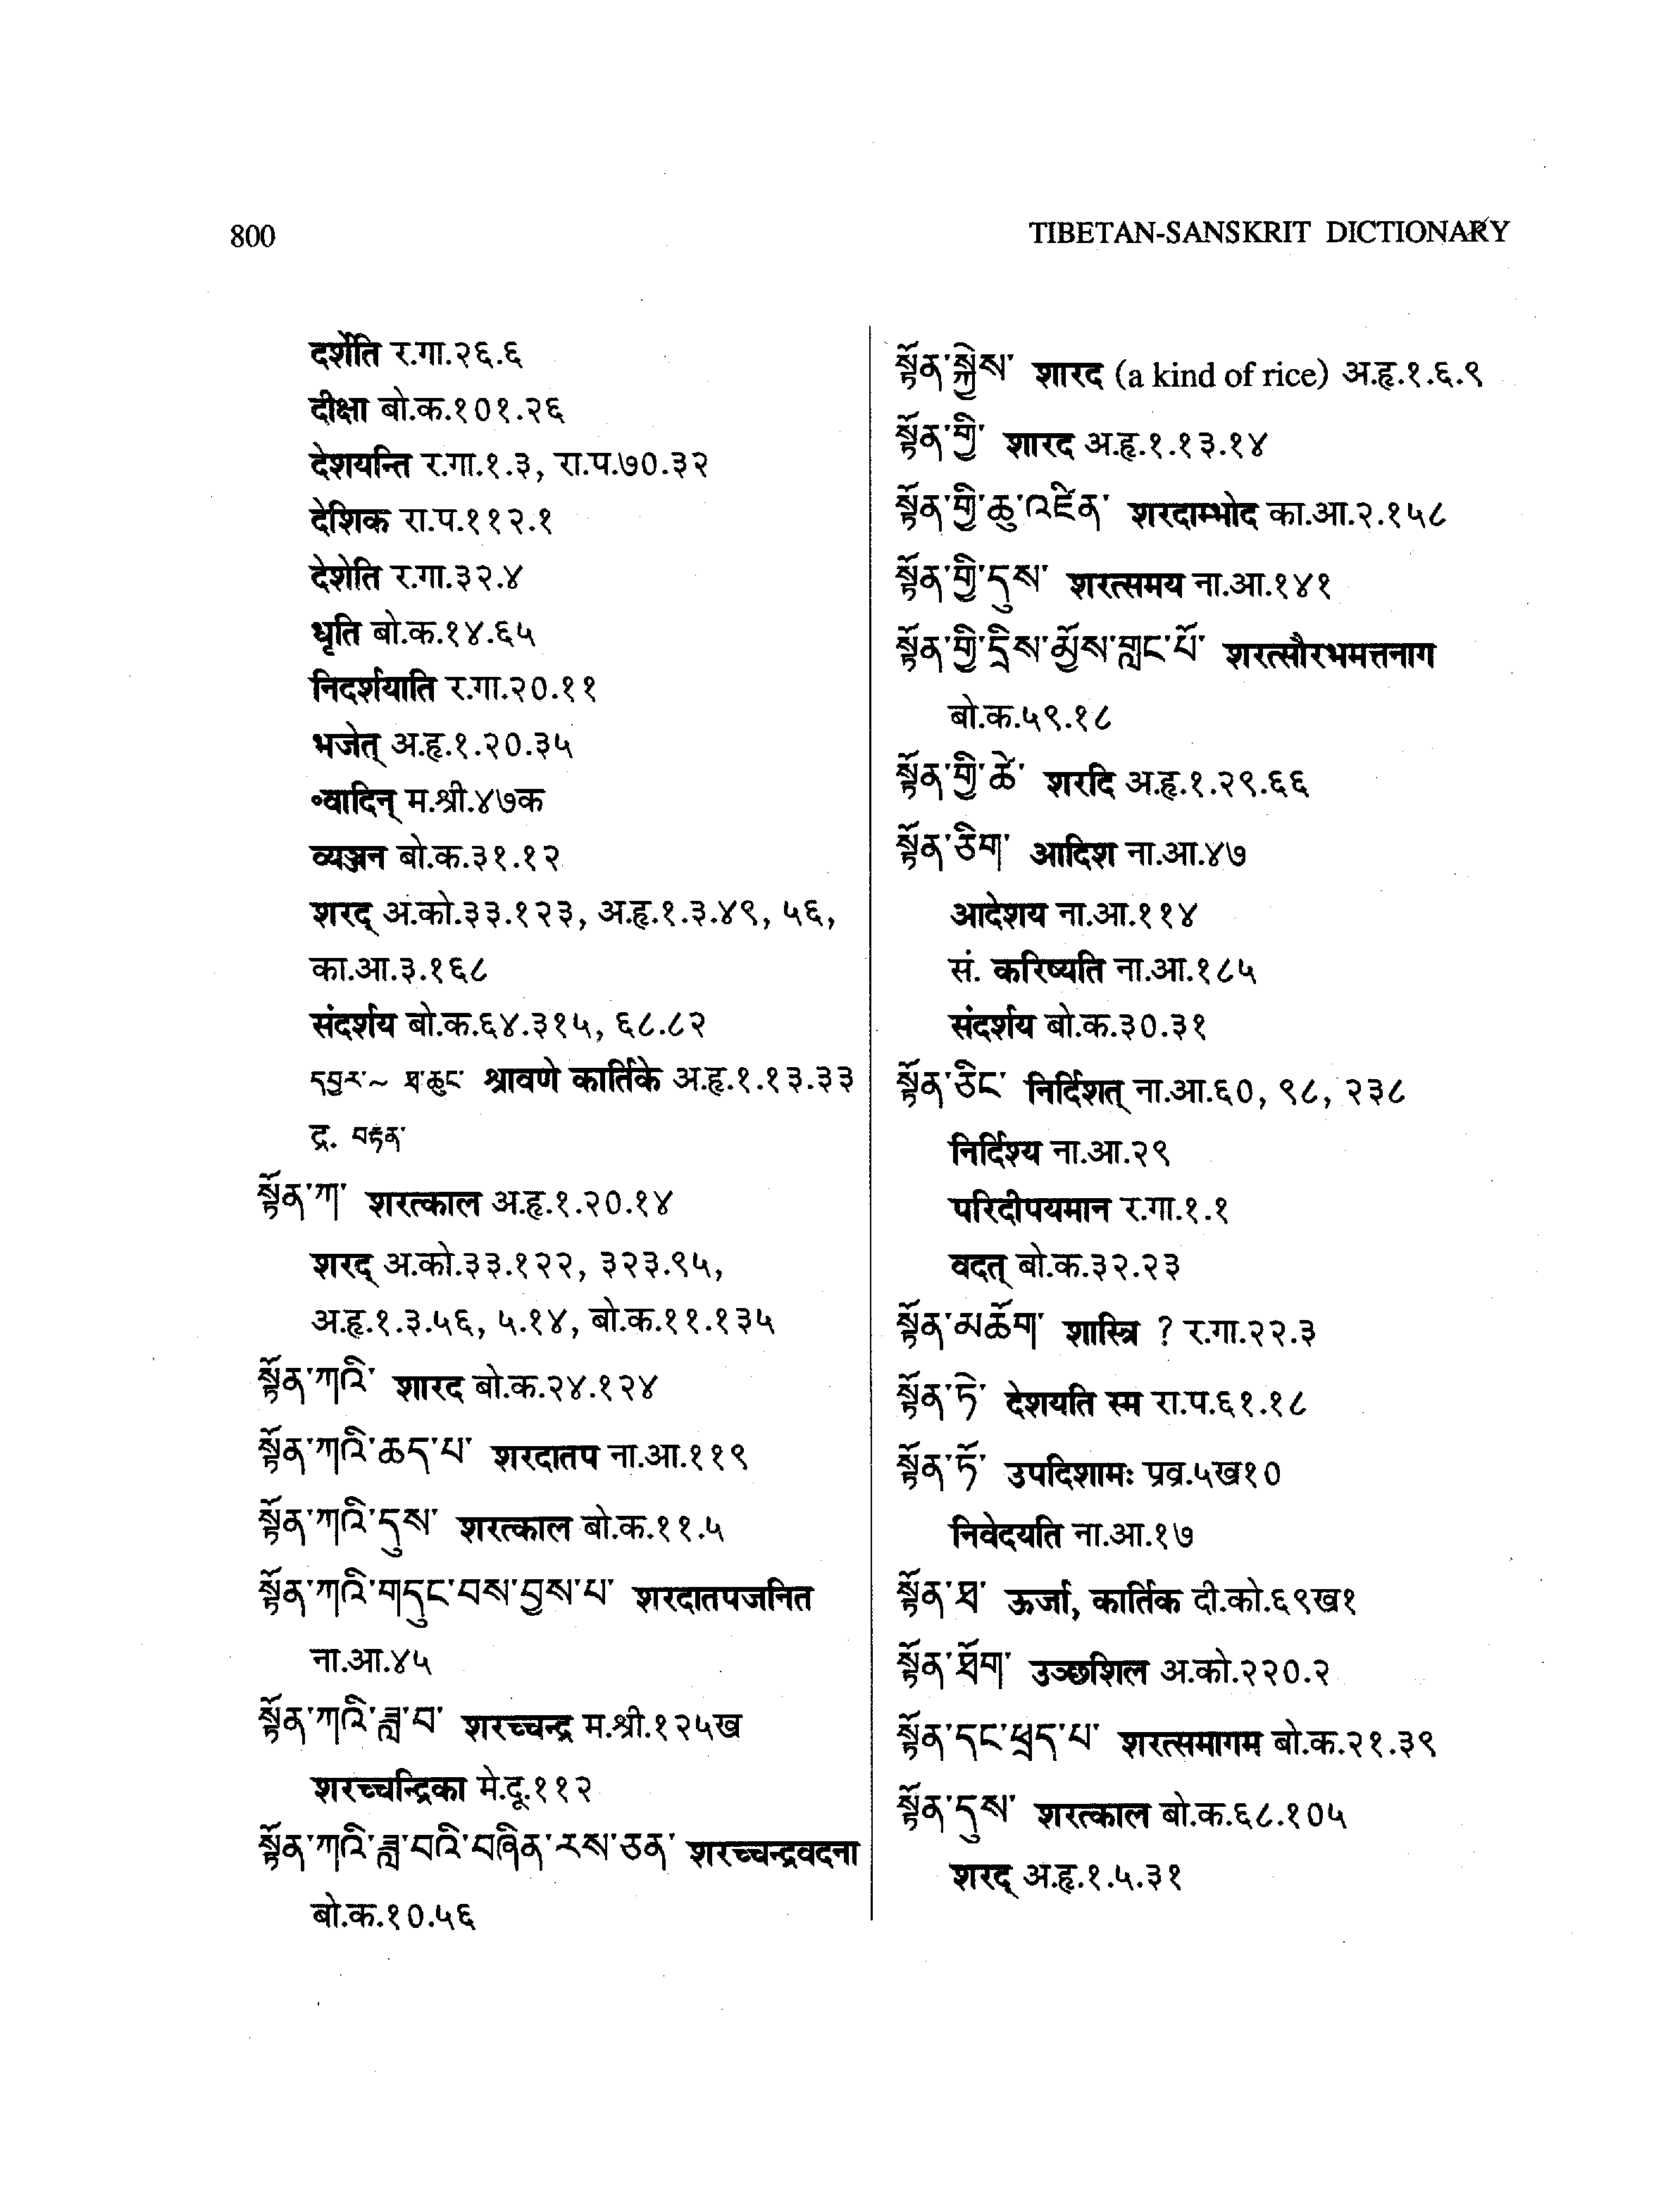 800
TIBETAN-SANSKRIT DICTIONARY
दर्शेति र.गा.२६.६
दीक्षा बो.क.१०१.२६
देशयन्ति र.गा.१.३, रा.प.७०.३२
देशिक रा.प.११२.१
देशेति र.गा.३२.४
धृति बो.क.१४.६५
निदर्शयाति र.गा.२०.११
भजेत् अ.हृ.१.२०.३५
॰वादिन् म.श्री.४७क
व्यञ्जन बो.क.३१.१२
शरद् अ.को.३३.१२३, अ.हृ.१.३.४९, ५६,
का.आ.३.१६८
संदर्शय बो.क.६४.३१५, ६८.८२
དབྱར་~ ཐ་ཆུང་ श्रावणे कार्तिके अ.हृ.१.१३.३३
द्र. བརྟན་
སྟོན་ཀ་ शरत्काल अ.हृ.१.२०.१४
शरद् अ.को.३३.१२२, ३२३.९५,
अ.हृ.१.३.५६, ५.१४, बो.क.११.१३५
སྟོན་ཀའི་ शारद बो.क.२४.१२४
སྟོན་ཀའི་ཆད་པ་ शरदातप ना.आ.११९
སྟོན་ཀའི་དུས་ शरत्काल बो.क.११.५
སྟོན་ཀའི་གདུང་བས་བྱས་པ་ शरदातपजनित
ना.आ.४५
སྟོན་ཀའི་ཟླ་བ་ शरच्चन्द्र म.श्री.१२५ख
शरच्चन्द्रिका मे.दू.११२
སྟོན་ཀའི་ཟླ་བའི་བཞིན་རས་ཅན་ शरच्चन्द्रवदना
बो.क.१०.५६
སྟོན་སྐྱེས་ शारद (a kind of rice) अ.हृ.१.६.९
སྟོན་གྱི་ शारद अ.हृ.१.१३.१४
སྟོན་གྱི་ཆུ་འཛིན་ शरदाम्भोद का.आ.२.१५८
སྟོན་གྱི་དུས་ शरत्समय ना.आ.१४१
སྟོན་གྱི་དྲིས་མྱོས་གླང་པོ་ शरत्सौरभमत्तनाग
बो.क.५९.१८
སྟོན་གྱི་ཚེ་ शरदि अ.हृ.१.२९.६६
སྟོན་ཅིག་ आदिश ना.आ.४७
आदेशय ना.आ.११४
सं. करिष्यति ना.आ.१८५
संदर्शय बो.क.३०.३१
སྟོན་ཅིང་ निर्दिशत् ना.आ.६०, ९८, २३८
निर्दिश्य ना.आ.२९
परिदीपयमान र.गा.१.१
वदत् बो.क.३२.२३
སྟོན་མཆོག་ शास्त्रि ? र.गा.२२.३
སྟོན་ཏེ་ देशयति स्म रा.प.६१.१८
སྟོན་ཏོ་ उपदिशामः प्रव्र.५ख१०
निवेदयति ना.आ.१७
སྟོན་ཐ་ ऊर्जा, कार्तिक दी.को.६९ख१
སྟོན་ཐོག་ उञ्छशिल अ.को.२२०.२
སྟོན་དང་ཕྲད་པ་ शरत्समागम बो.क.२१.३९
སྟོན་དུས་ शरत्काल बो.क.६८.१०५
शरद् अ.हृ.१.५.३१